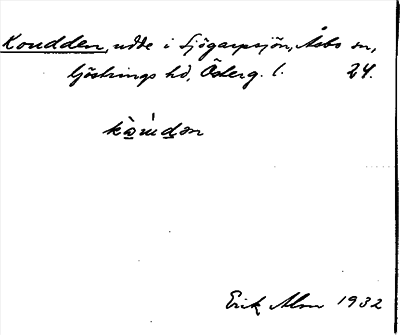 Koudden, udde i Sjögarpsjön, Åsbo sn,
Göstrings hd, Österg. l. 24.
Erik Alm 1932